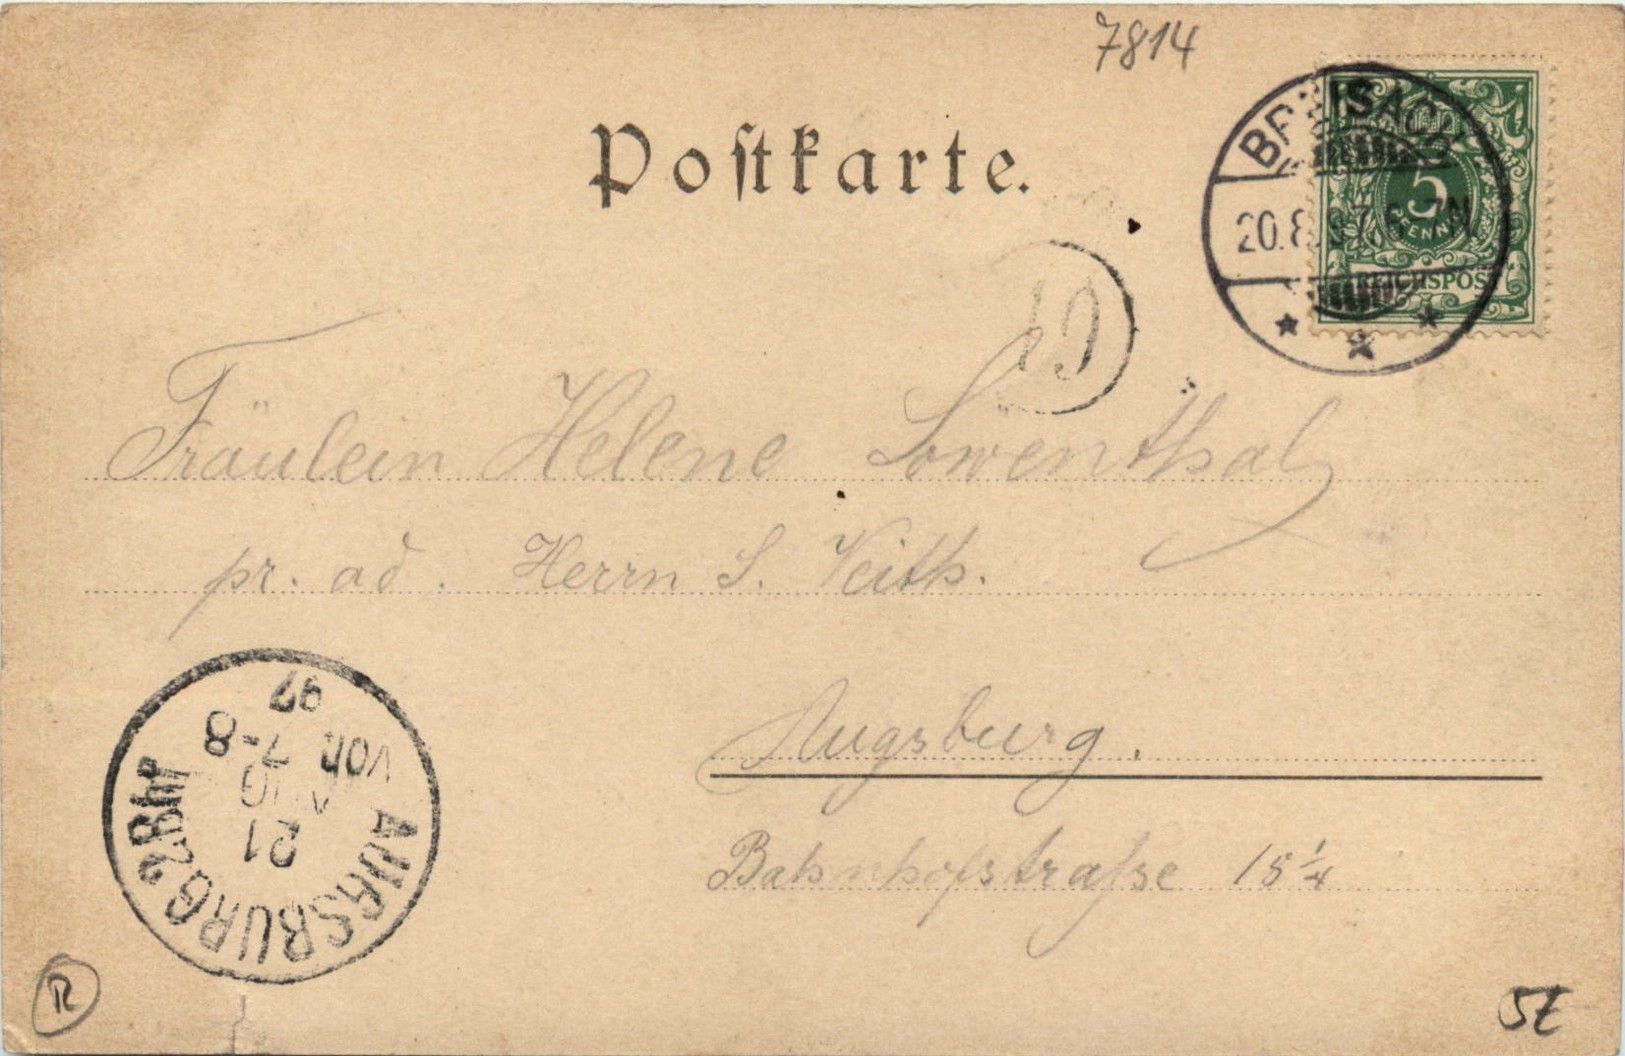 7814
Postkarte.
BREISACH
20.8.97.6-7N
5
PFENNIG
REICHSPOST
Fräulein Helene Löwenthal
pr. ad. Herrn S. Veith.
Augsburg.
Bahnhofstraſse 15 1/4
AUGSBURG 2 Bhf
21
AUG
VOR. 7-8
97
R